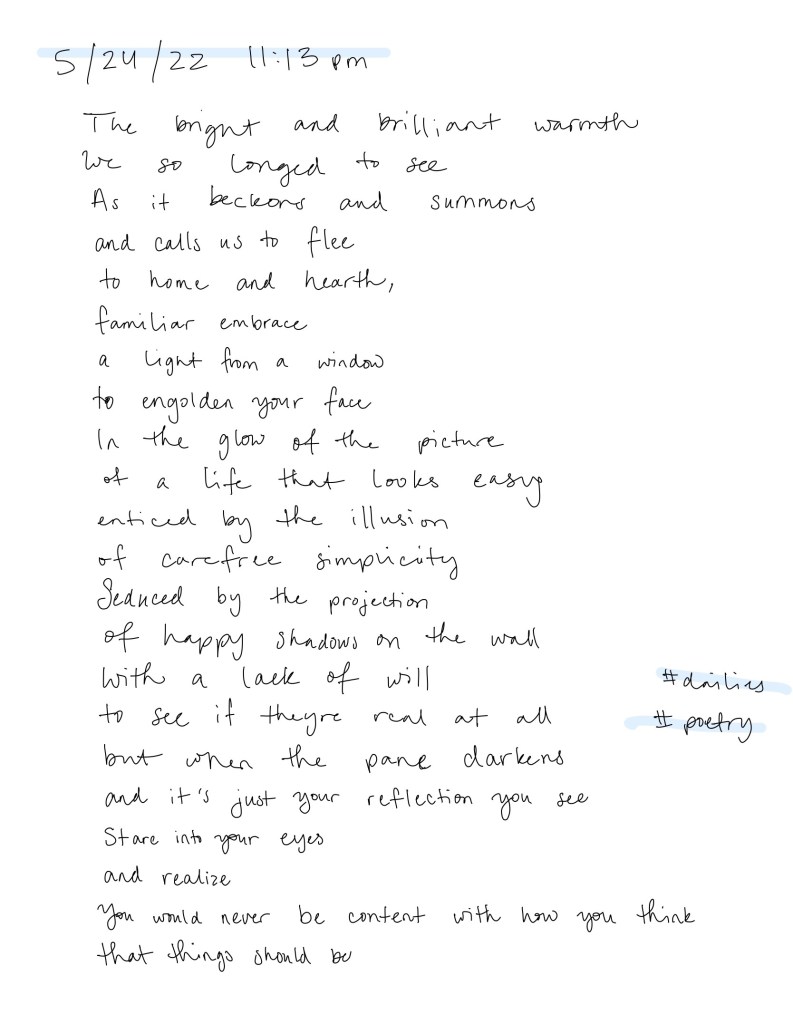 5/24/22 11:13 pm
The bright and brilliant warmth
We so longed to see
As it beckons and summons
and calls us to flee
to home and hearth,
familiar embrace
a light from a window
to engolden your face
In the glow of the picture
of a life that looks easy
enticed by the illusion
of carefree simplicity
Seduced by the projection
of happy shadows on the wall
With a lack of will
#dailies
to see if theyre real at all
# poetry
but when the pane darkens
and it's just your reflection you see
Stare into your eyes
and realize
You would never be content with how you think
that things should be